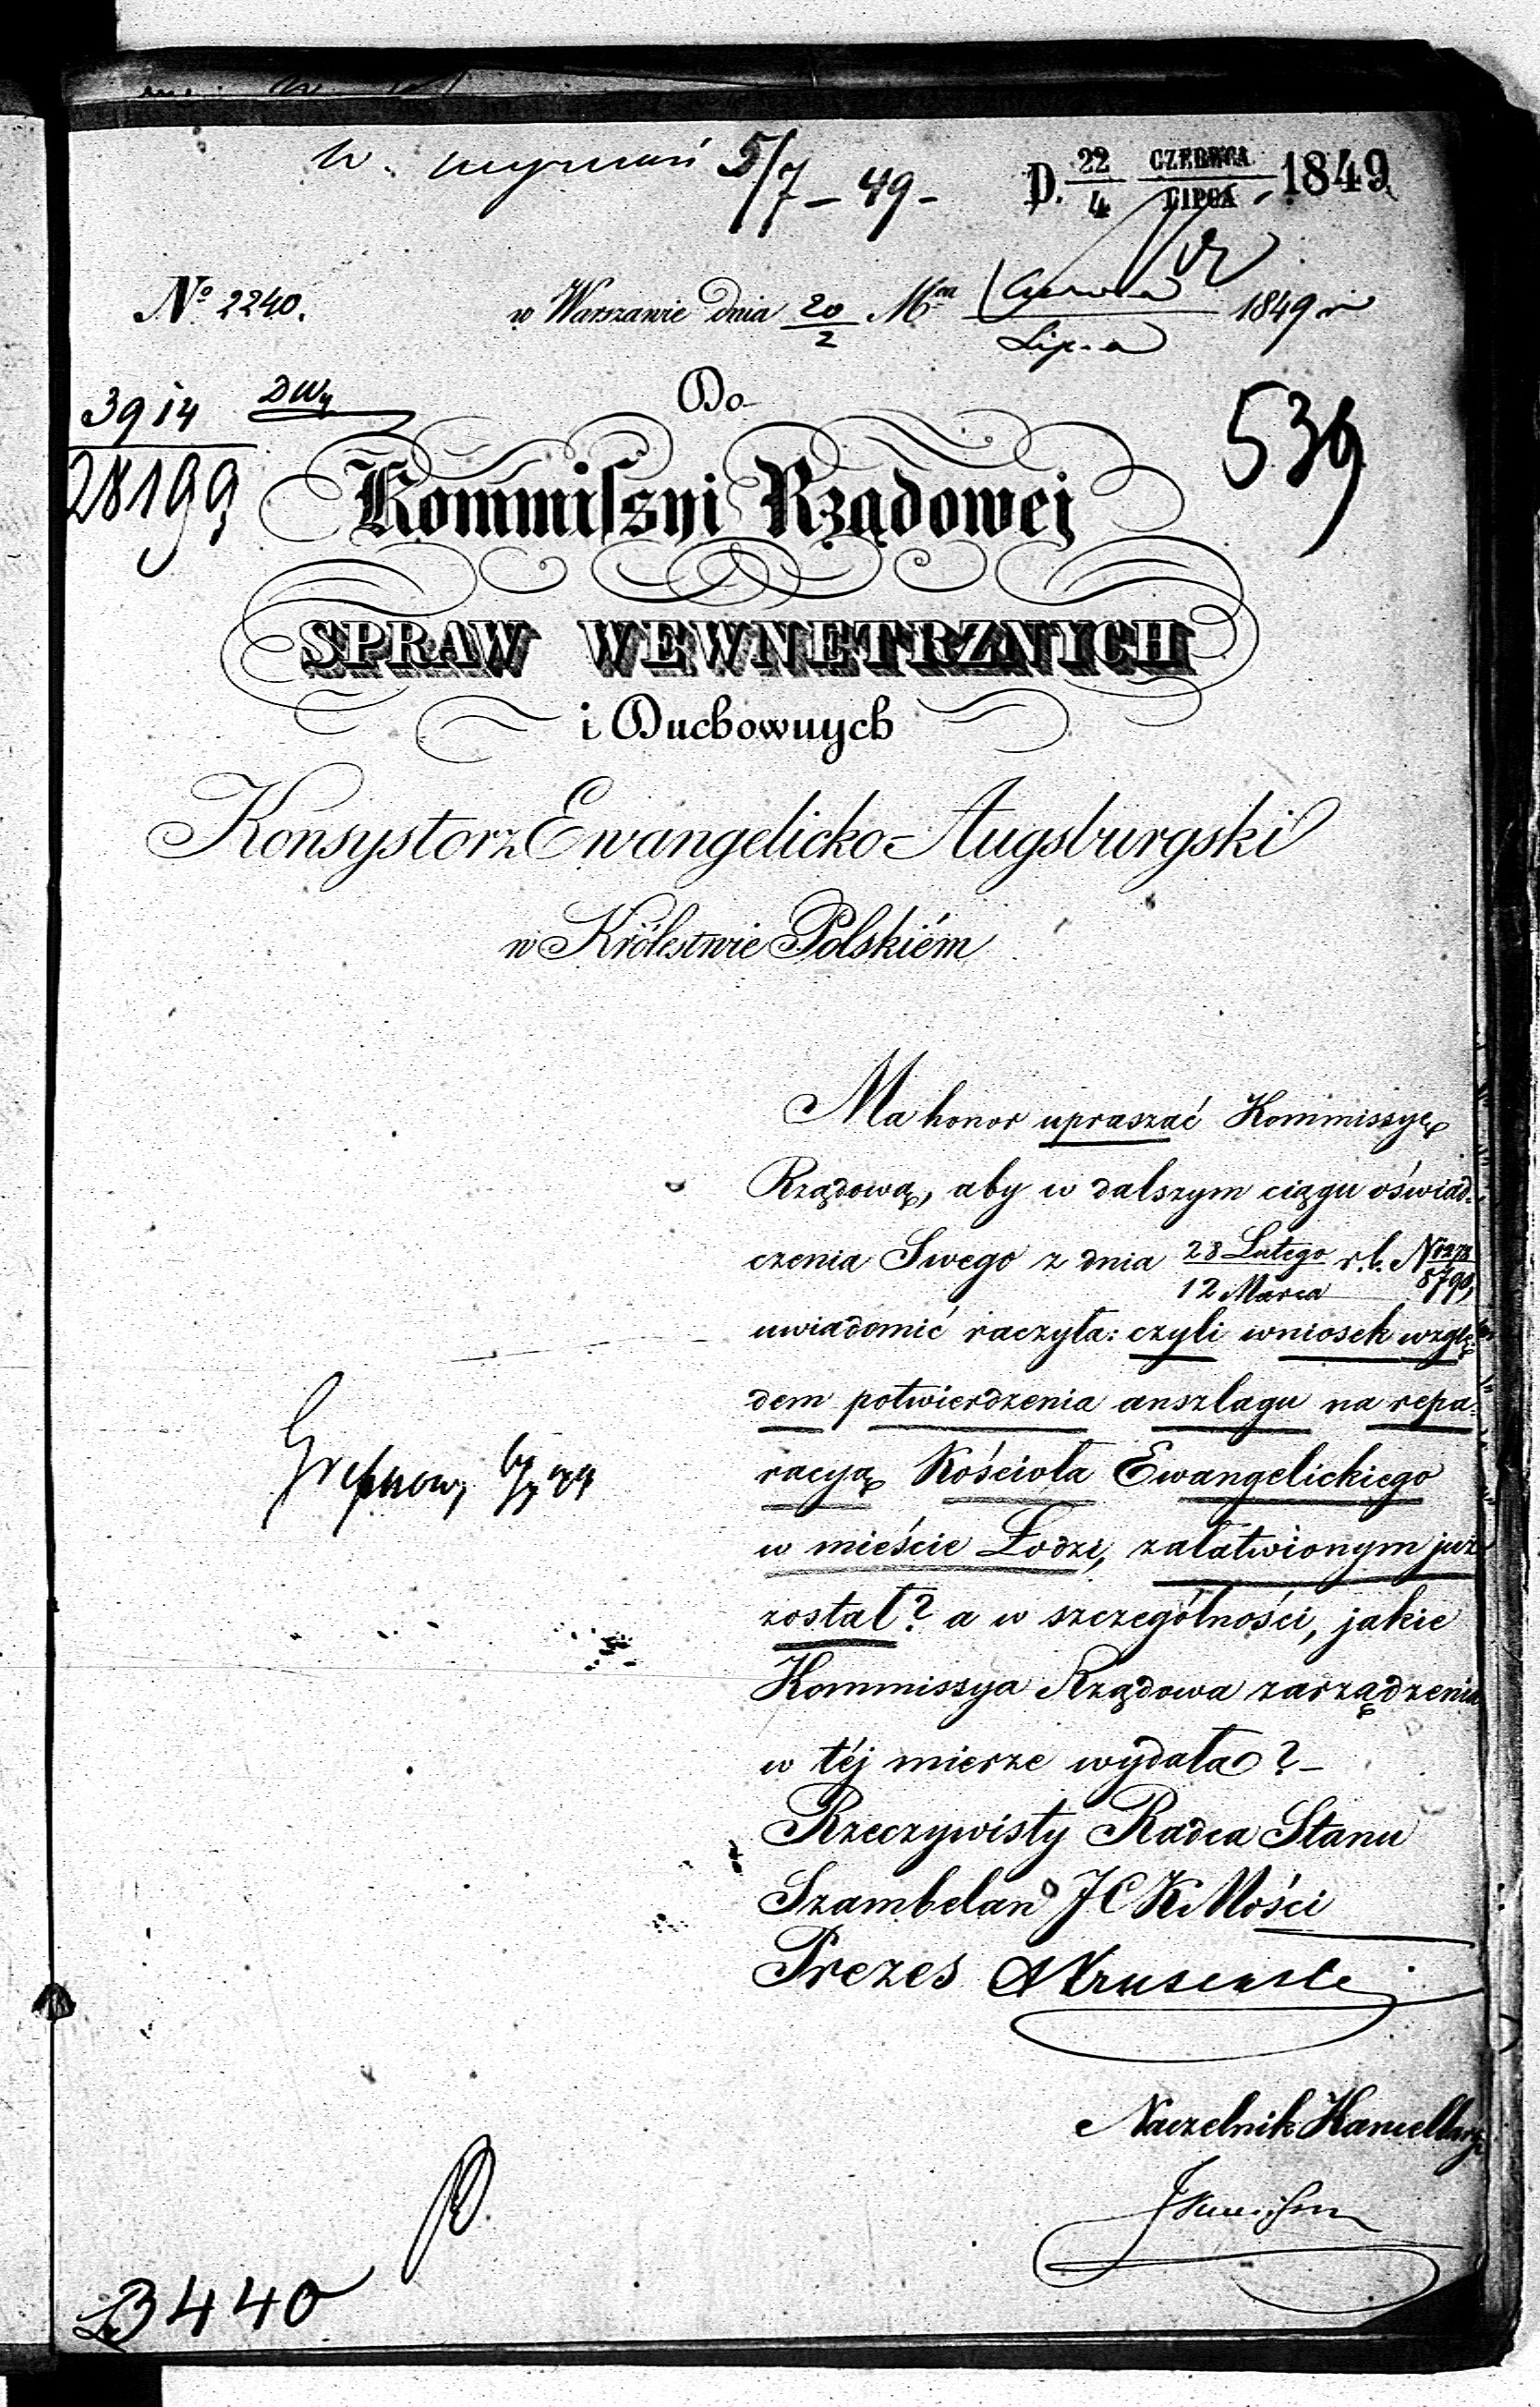 5/7 – 49 –
D. 22/4 CZERWCA/LIPCA 1849
№ 2240.
w Warszawie dnia 20/2 Mca Czerwca/Lipca 1849 r
3914
28199
539
Do
Kommissyi Rządowej
SPRAW WEWNETRZNYCH
i Duchownych
Konsystorz Ewangelicko-Augsburgski
w Królestwie Polskiém
Ma honor upraszać Kommissyę
Rządową, aby w dalszym ciągu oświad-
czenia Swego z dnia 28 Lutego/12 Marca r.b. N
uwiadomić raczyła: czyli wniosek wzglę-
dem potwierdzenia anszlagu na repa-
racyą Kościoła Ewangelickiego
w mieście Łodzi, załatwionym już
został? a w szczególności, jakie
Kommissya Rządowa zarządzenia
w téj mierze wydała? –
Rzeczywisty Radca Stanu
Szambelan JCKMości
Prezes
Naczelnik Kancellaryi
3440